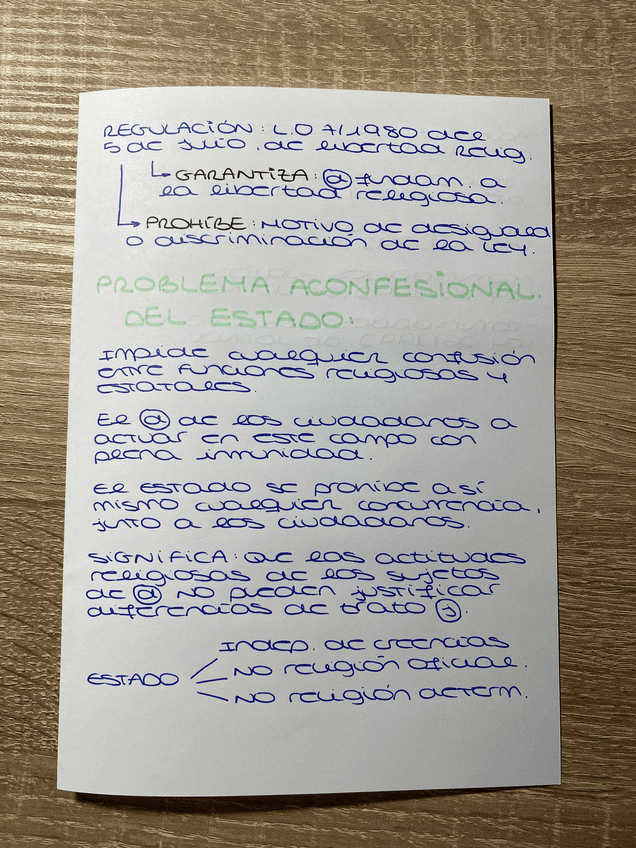 REGULACIÓN: L.O 7/1980 del
5 de Julio, de libertad relig.
GARANTIZA: ⓓ fundam. a
la libertad religiosa.
PROHÍBE: MOTIVO de desiguald
o discriminación de la LEY.
PROBLEMA ACONFESIONAL.
DEL ESTADO:
Impide cualquier confusión
entre funciones religiosas y
estatales.
El ⓓ de los ciudadanos a
actuar en este campo con
plena inmunidad.
El ESTADO se prohíbe a sí
mismo cualquier concurrencia,
junto a los ciudadanos.
SIGNIFICA: Que las actitudes
religiosas de los sujetos
de ⓓ no pueden justificar
diferencias de trato ⓙ.
Indep. de creencias
ESTADO NO religión oficial.
NO religión determ.